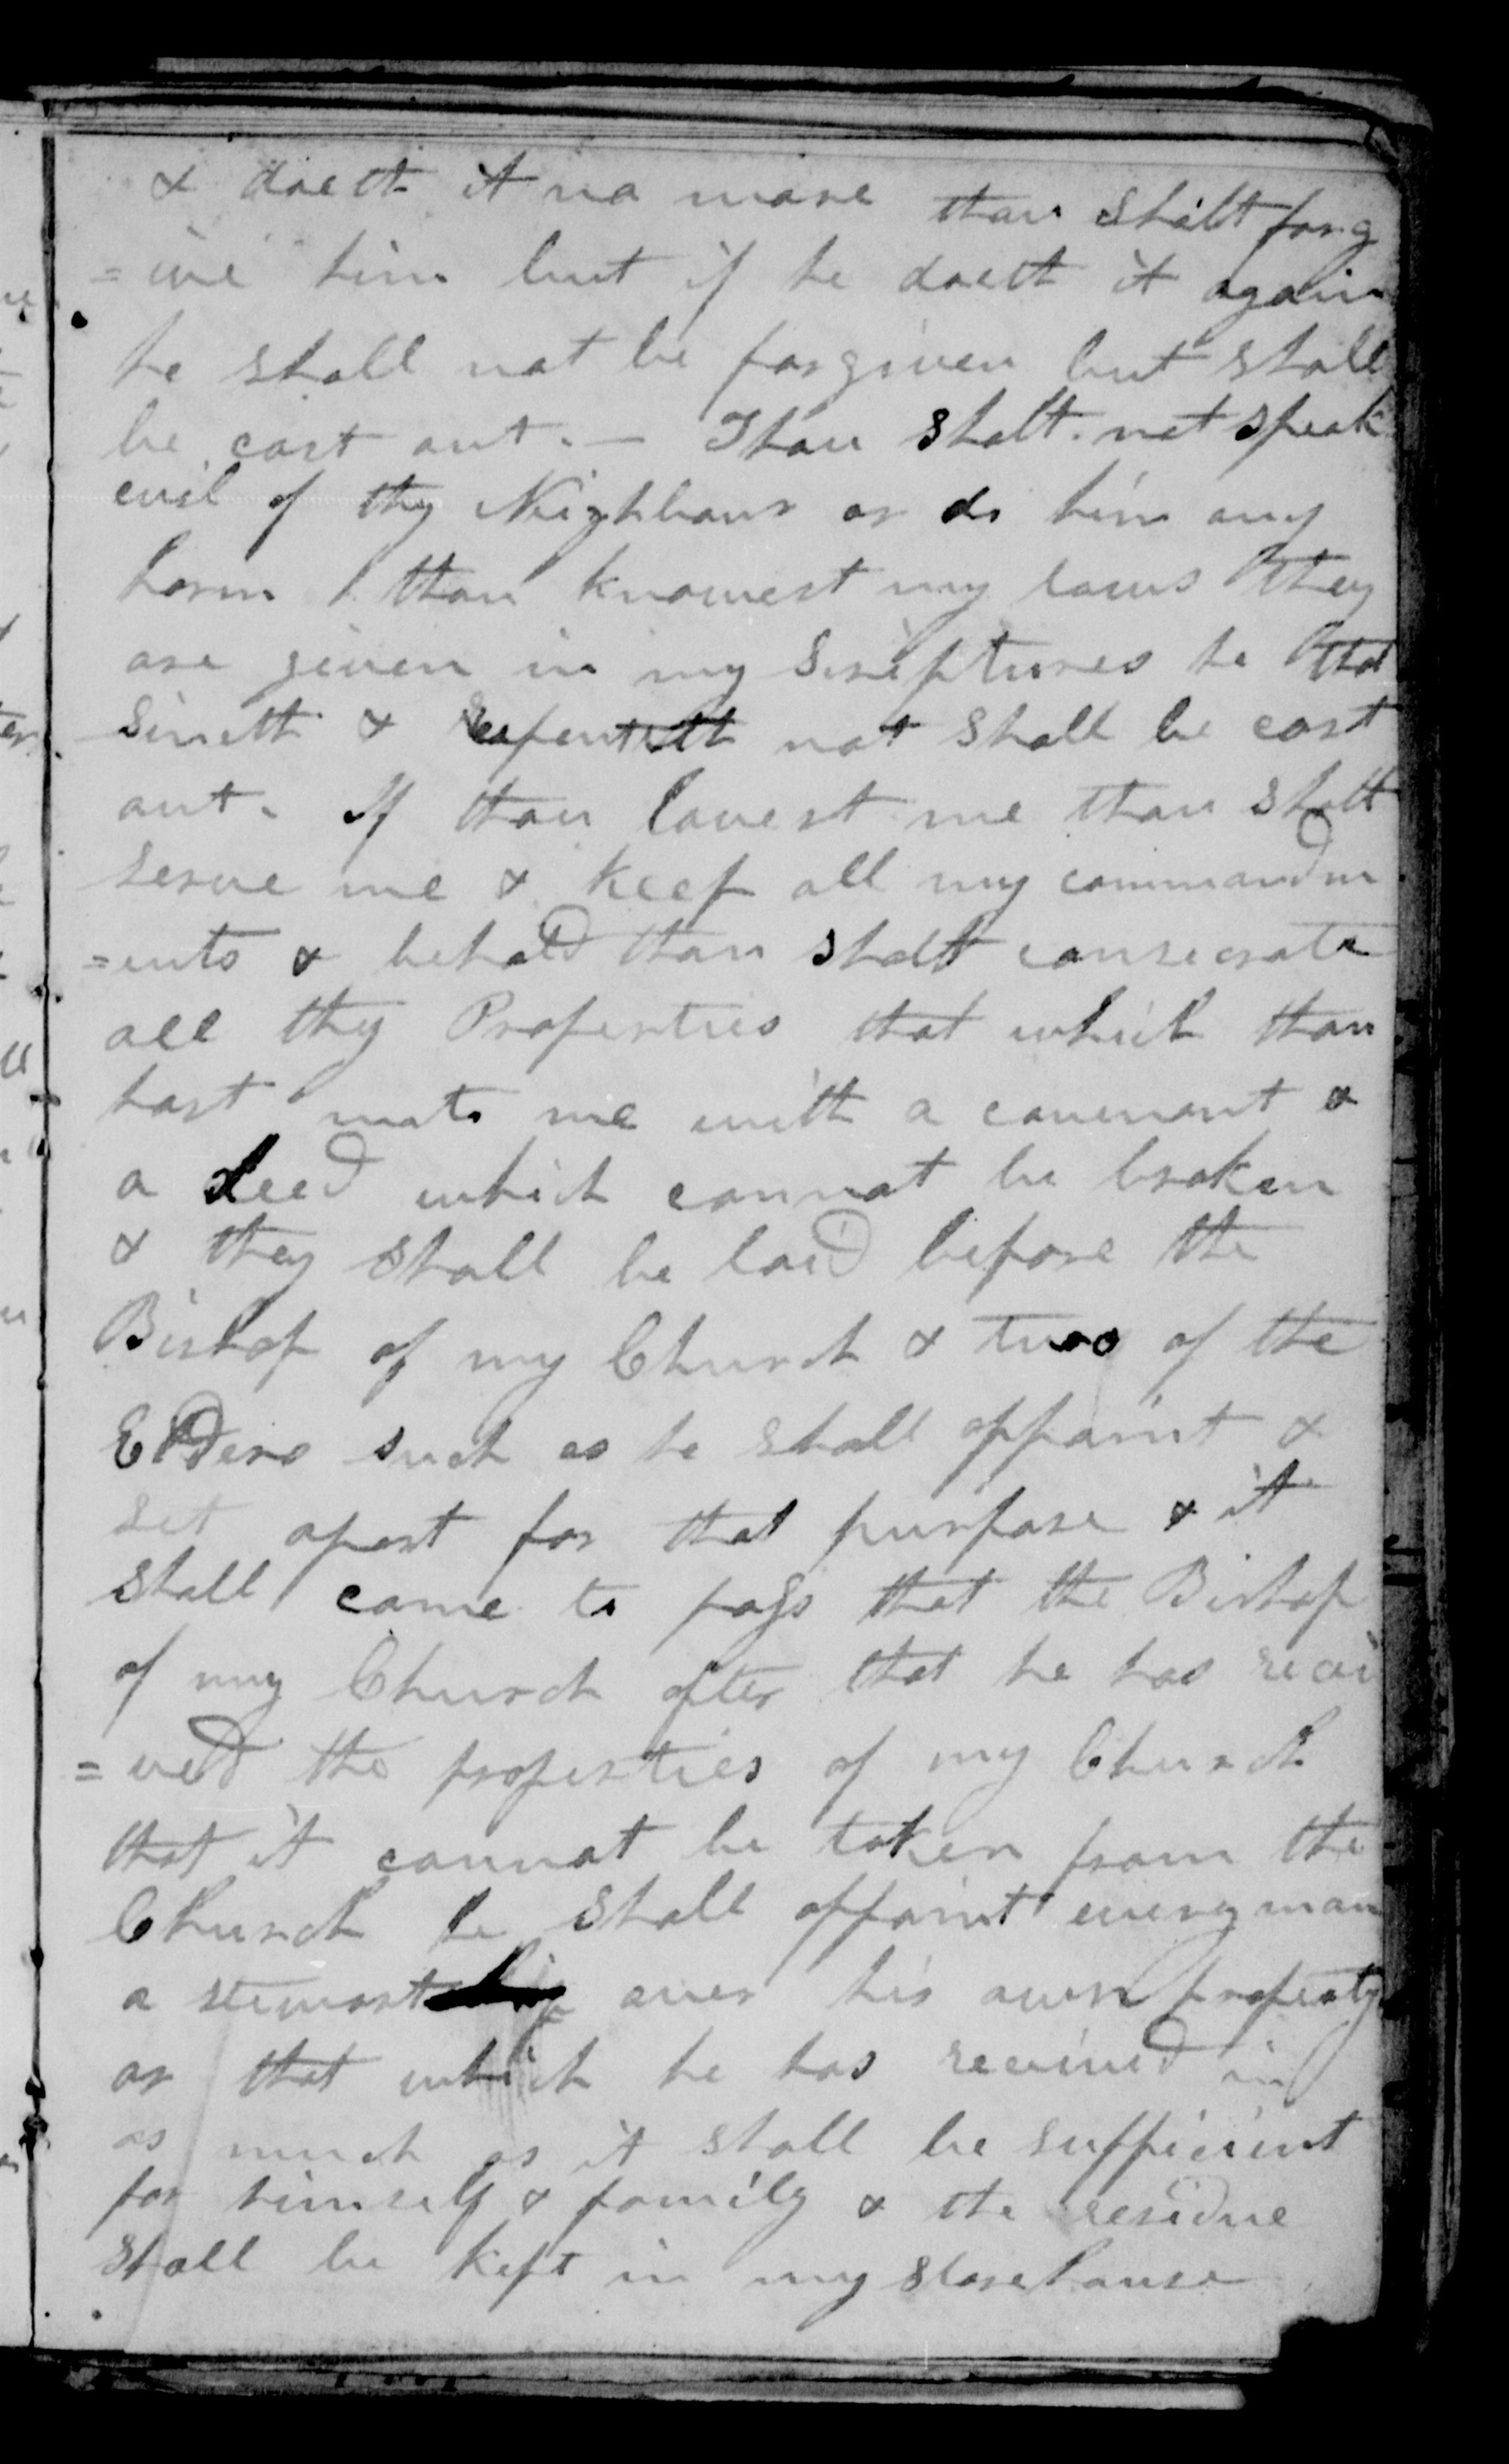 & doeth it no more thou shalt forg
=ive him but if he doeth it again
he shall not be forgiven but shall
be cast out. — Thou shalt not speak
evil of thy Neighbour or do him any
harm thou knowest my laws they
are given in my Scriptures he that
sineth & repenteth not shall be cast
out. If thou lovest me thou shalt
serve me & keep all my commandm
=ents & behold thou shalt consecrate
all thy Properties that which thou
hast unto me with a covenant &
a deed which cannot be broken
& they shall be laid before the
Bishop of my Church & two of the
Elders such as he shall appoint &
set apart for that purpose & it
shall come to pass that the Bishop
of my Church after that he has recei
=ved the properties of my Church
that it cannot be taken from the
Church he shall appoint every man
a steward over his own property
or that which he has received in
as much as it shall be sufficient
for himself & family & the residue
shall be kept in my storehouse